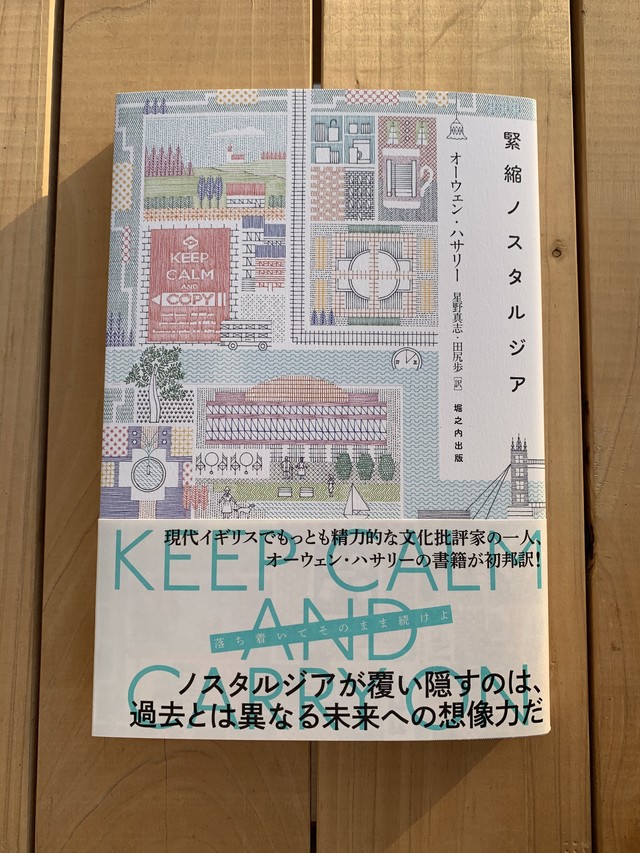 緊縮ノスタルジア
オーウェン・ハサリー
星野真志・田尻歩[訳]
堀之内出版
KEEP
CALM
AND
COPY
現代イギリスでもっとも精力的な文化批評家の一人、
オーウェン・ハサリーの書籍が初邦訳!
KEEP CALM
AND
CARRY ON
落ち着いてそのまま続けよ
ノスタルジアが覆い隠すのは、
過去とは異なる未来への想像力だ